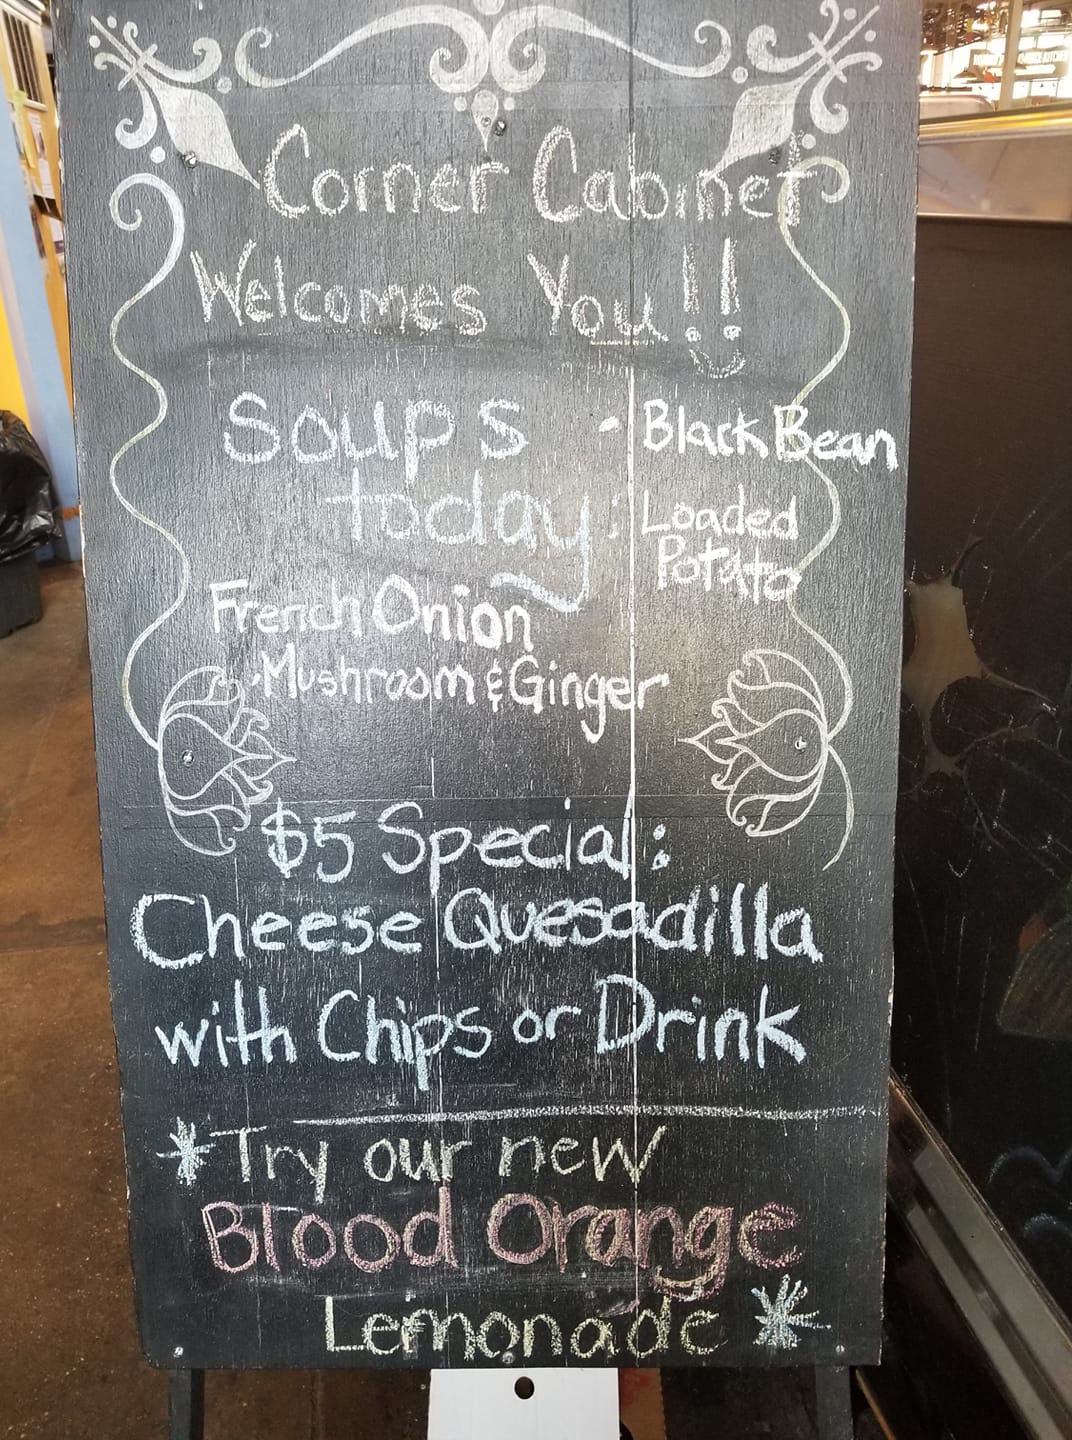 Corner Cabinet
Welcomes You!!
Soups
today:
• Black Bean
Loaded
Potato
French Onion
• Mushroom & Ginger
$5 Special:
Cheese Quesadilla
with Chips or Drink
*Try our new
Blood Orange
Lemonade *